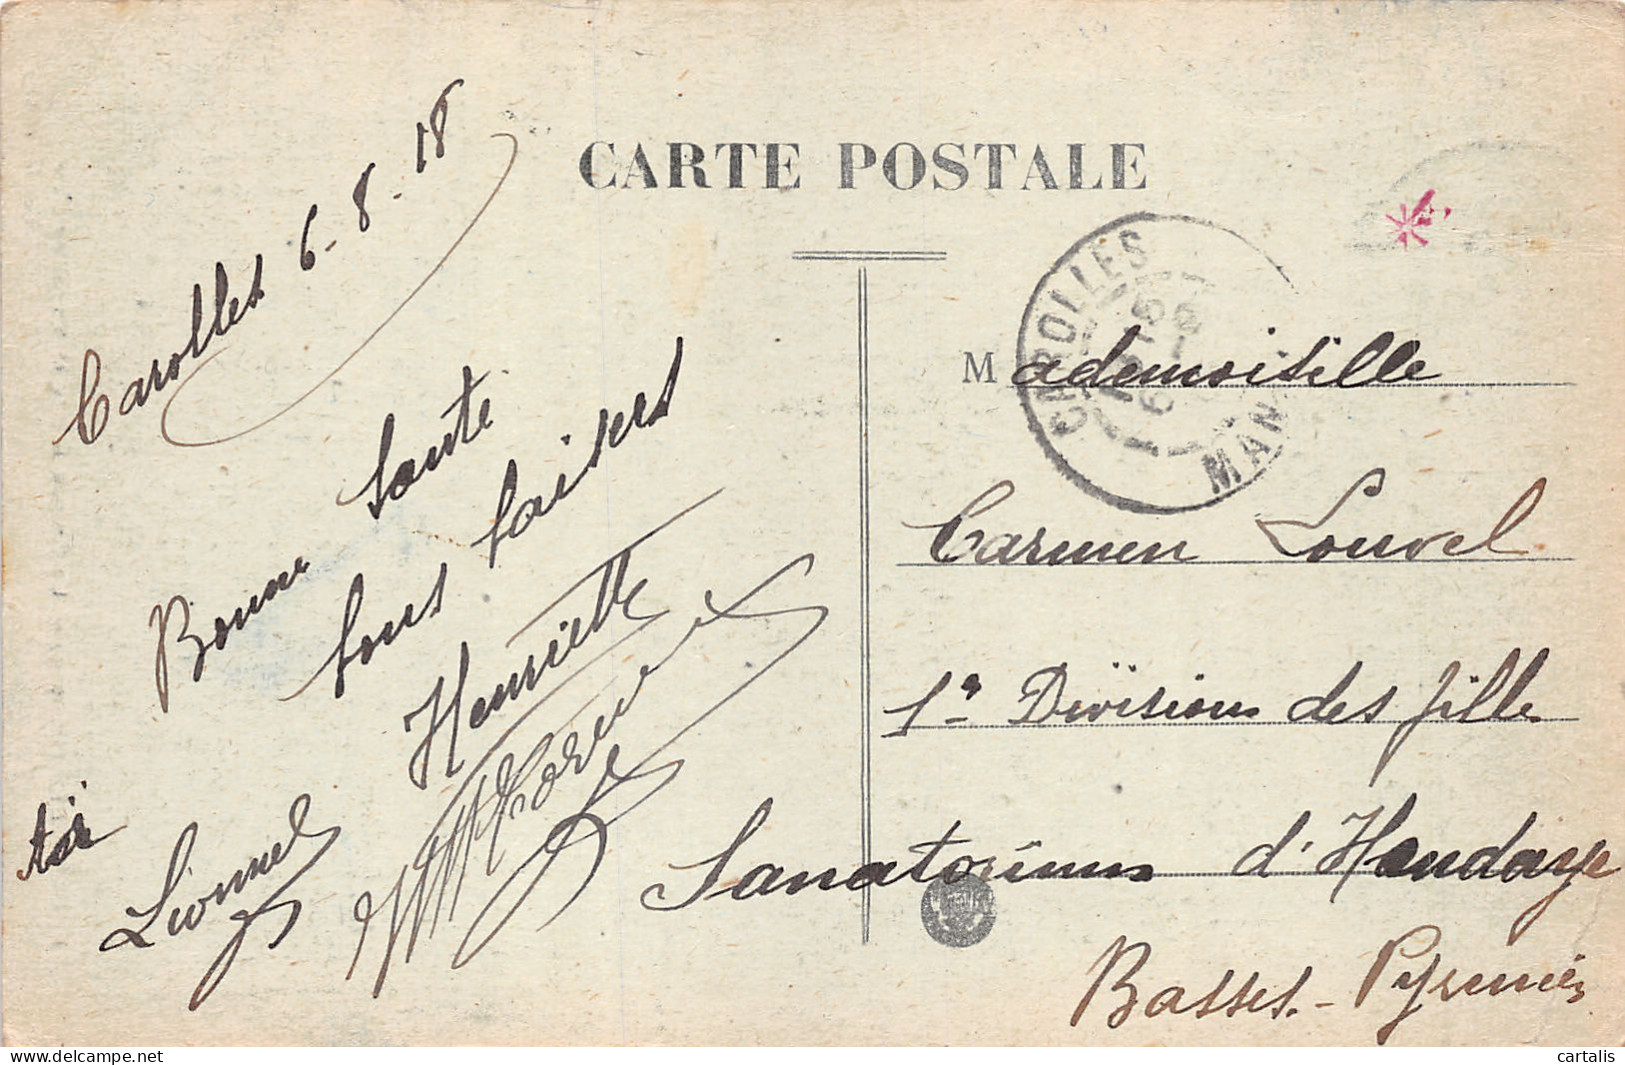 CARTE POSTALE
Carolles 6-8-18
Bonne Santé
bons baisers
Henriette
Lionnel
CAROLLES
MAN
Mademoisille
Carmen Louvel
1ª Divisions des fille
Sanatoriums d'Hendaye
Basses-Pyrenées
www.delcampe.net
cartalis